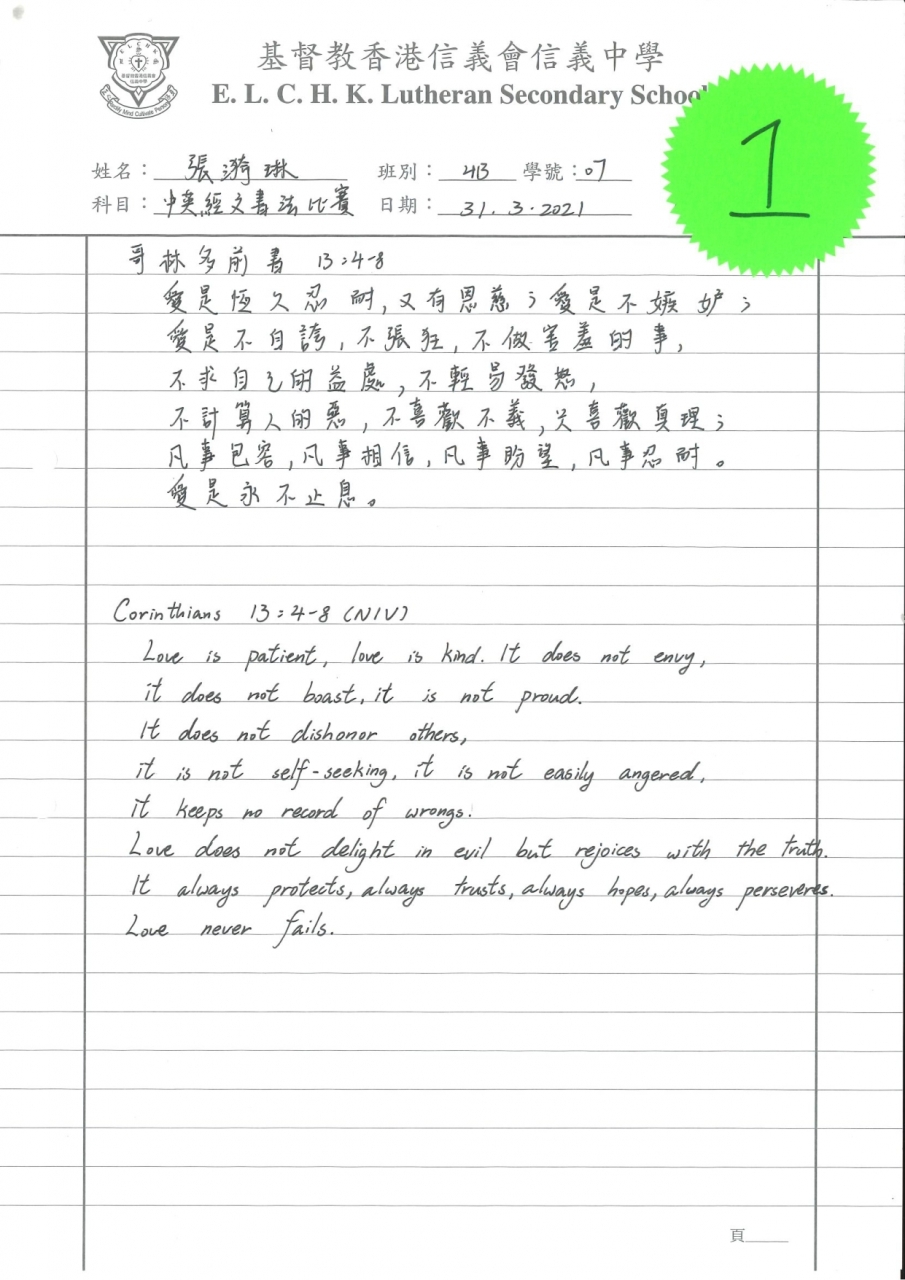 基督教香港信義會信義中學
E. L. C. H. K. Lutheran Secondary School
1
姓名：張漪琳 班別：4B 學號：07
科目：中英經文書法比賽 日期：31.3.2021
哥林多前書 13:4-8
愛是恆久忍耐，又有恩慈；愛是不嫉妒；
愛是不自誇，不張狂，不做害羞的事，
不求自己的益處，不輕易發怒，
不計算人的惡，不喜歡不義，只喜歡真理；
凡事包容，凡事相信，凡事盼望，凡事忍耐。
愛是永不止息。
Corinthians 13:4-8 (NIV)
Love is patient, love is kind. It does not envy,
it does not boast, it is not proud.
It does not dishonor others,
it is not self-seeking, it is not easily angered,
it keeps no record of wrongs.
Love does not delight in evil but rejoices with the truth.
It always protects, always trusts, always hopes, always perseveres.
Love never fails.
頁